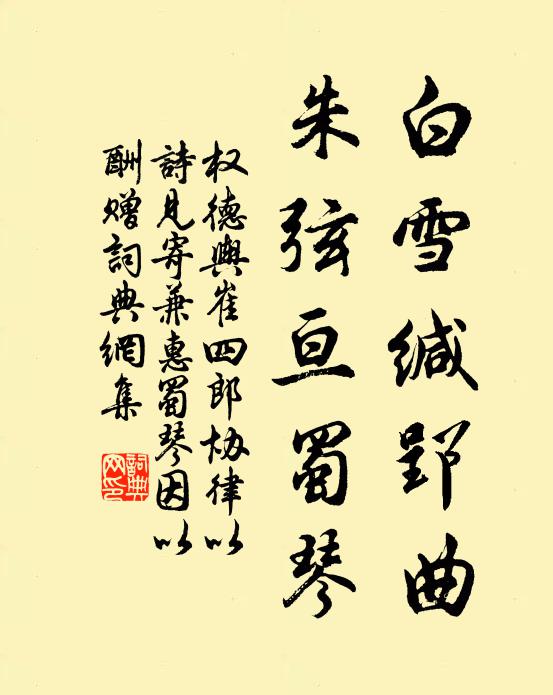 白雪缄郢曲
朱弦亘蜀琴
权德舆崔四郎协律以
詩見寄兼惠蜀琴因以
酬贈詞典網集
詞典网印